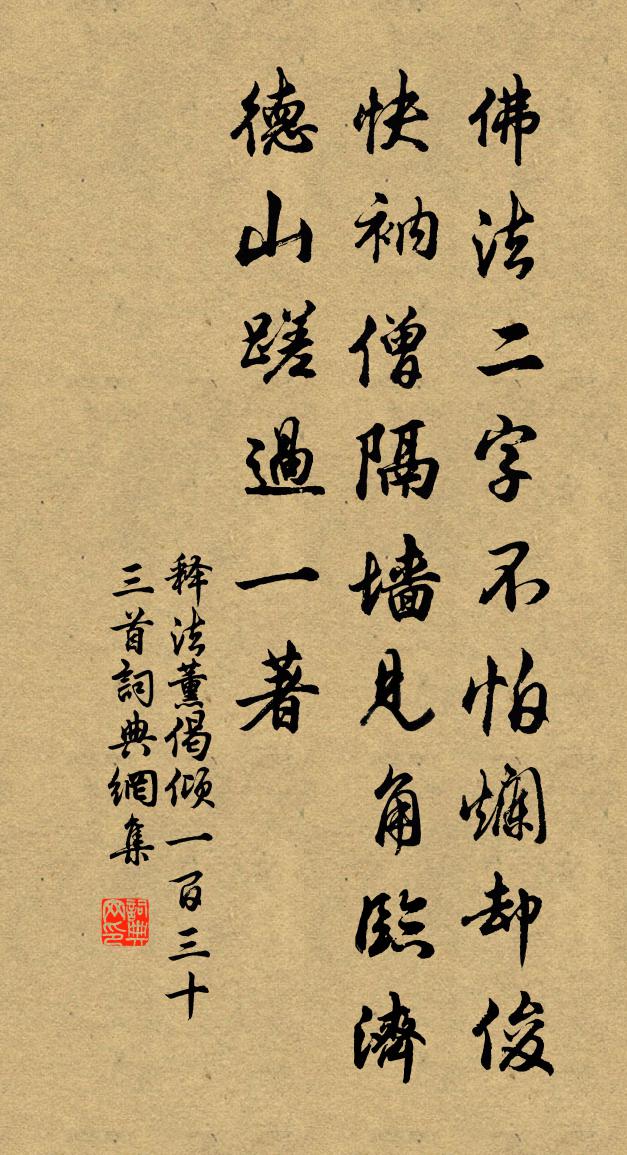 佛法二字不怕爛却俊
快衲僧隔墙見角臨濟
德山蹉過一著
释法薰偈倾一百三十
三首詞典網集
詞典网印